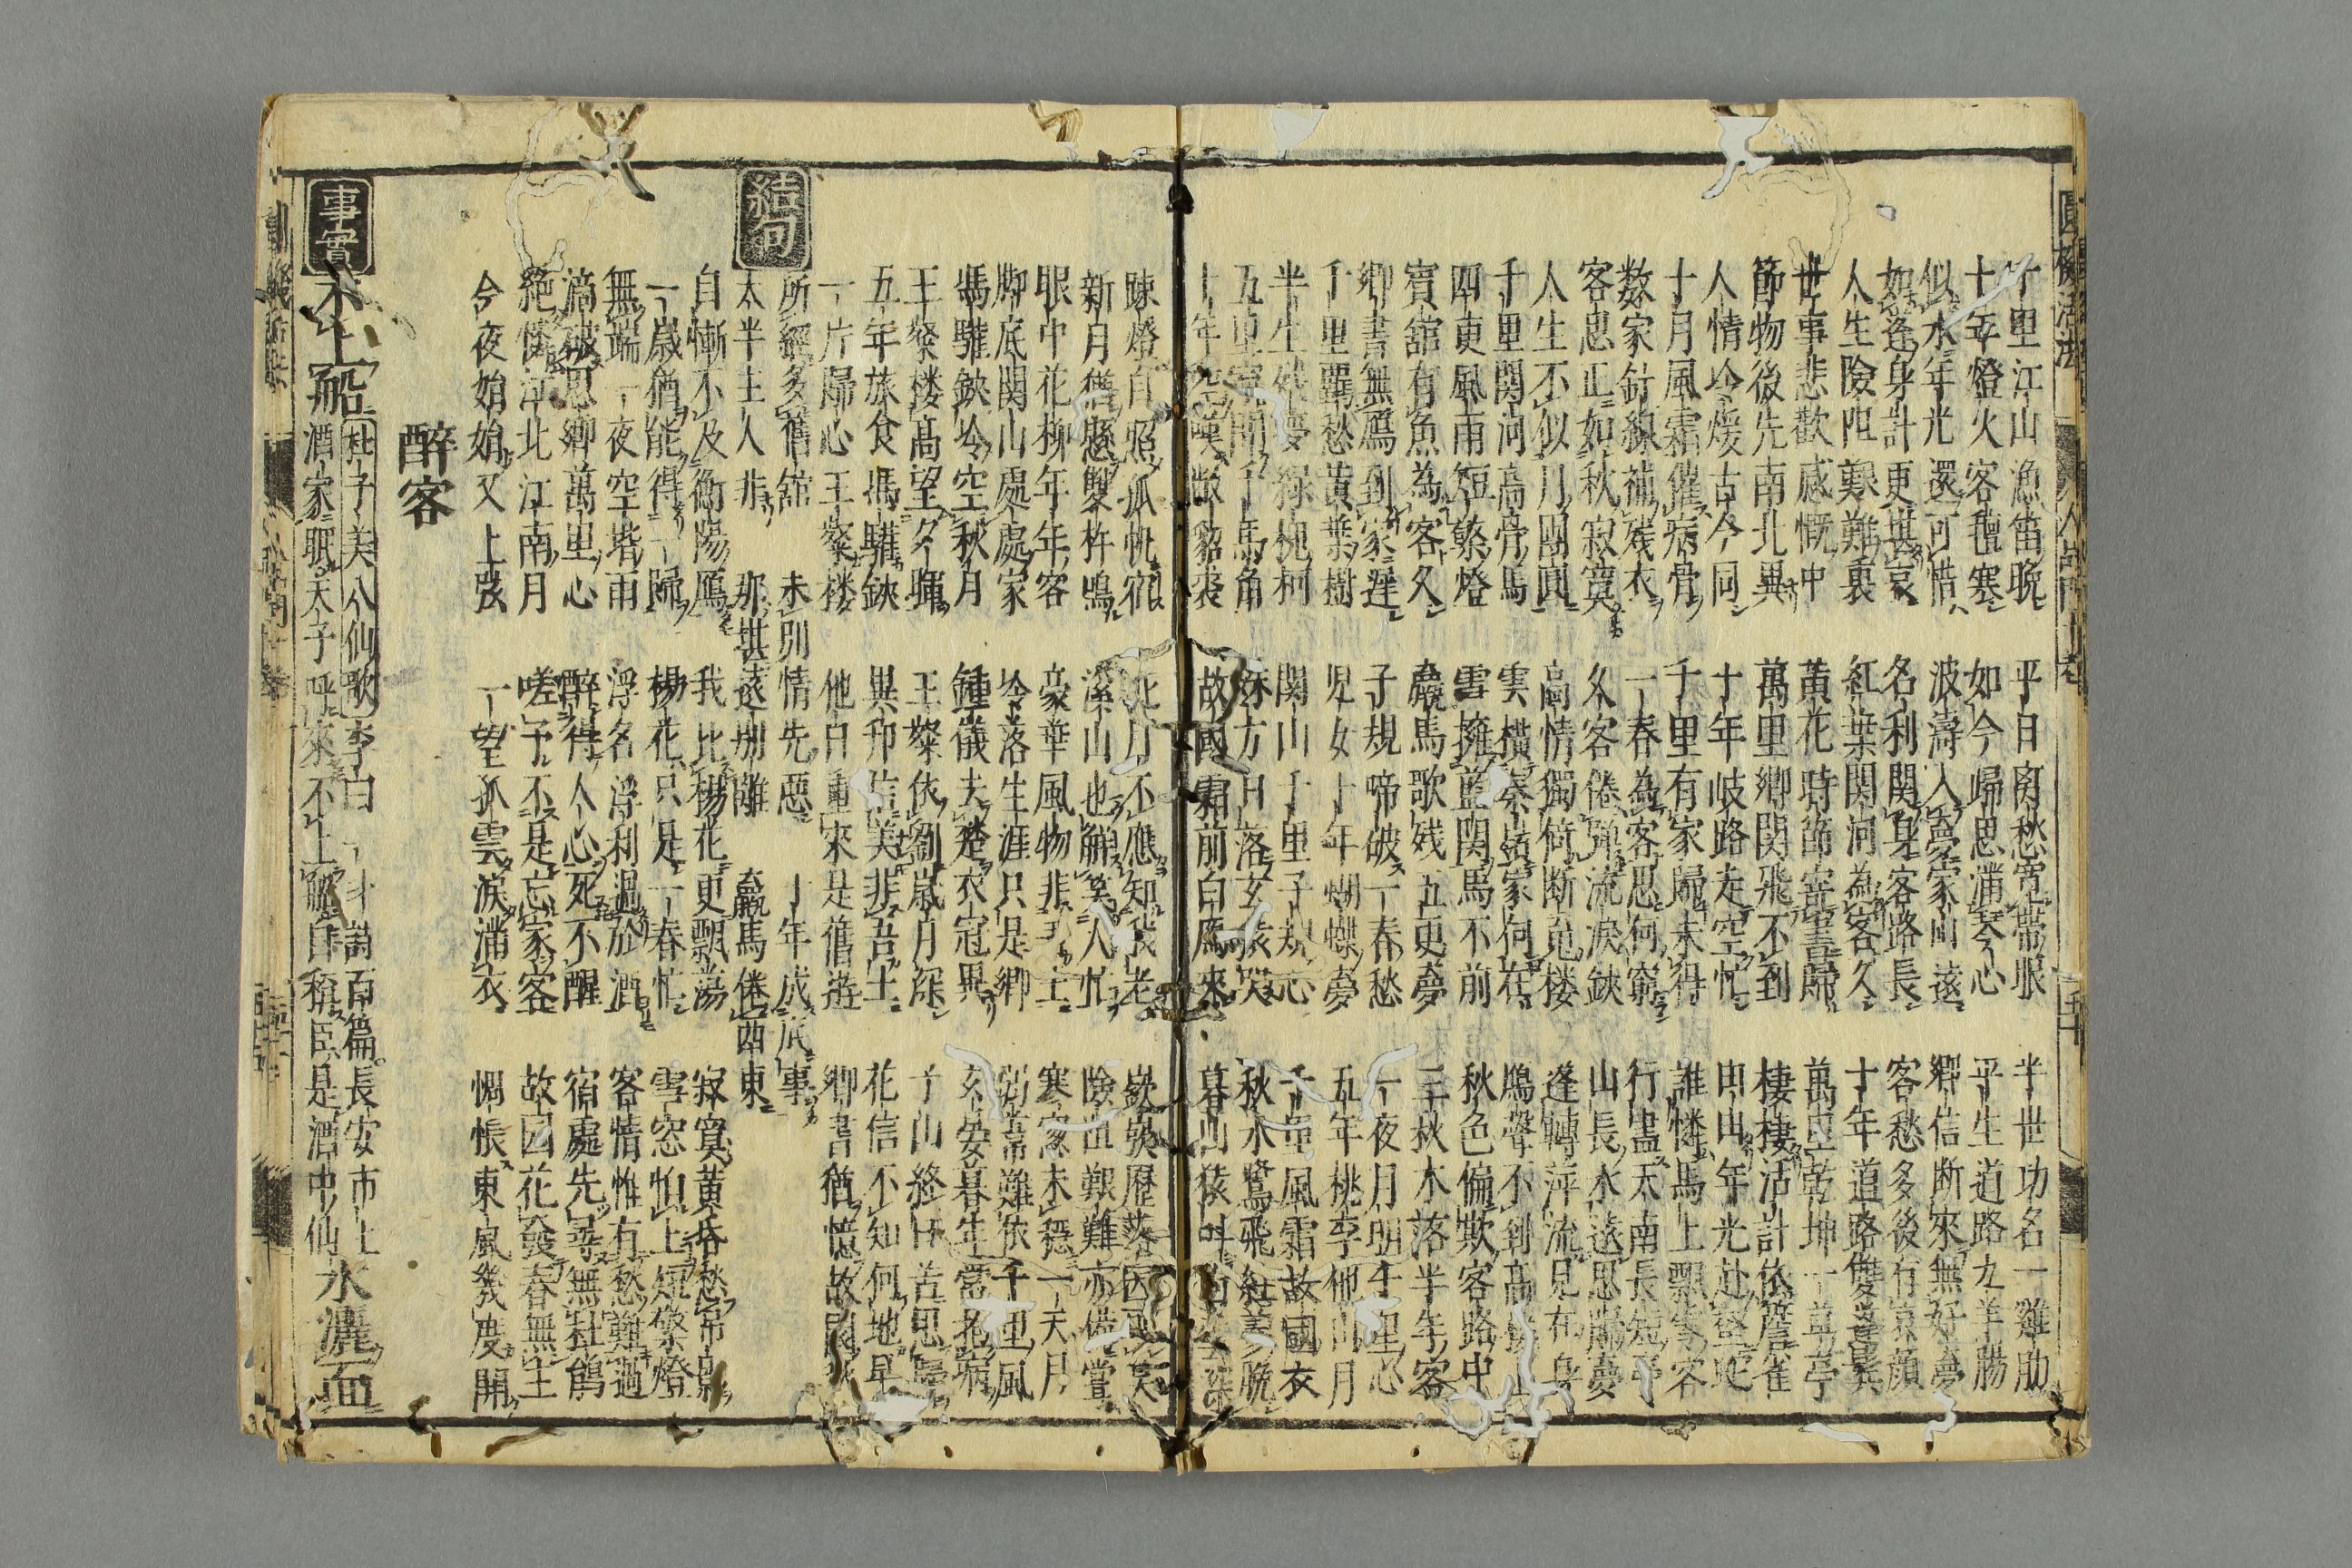 圓機活法
千里江山漁笛晩 平日離愁寬帶眼 半世功名一雞肋
十年燈火客氊寒 如今歸思滿琴心 平生道路九羊腸
似水年光還可惜 波濤入夢家山遠 鄉信断來無好夢
如逢身計更堪哀 名利関身客路長 客愁多後有衰顔
人生險阻艱難裏 紅葉関河為客久 十年道路雙蓬鬂
世事悲歡感慨中 黃花時節寄書歸 萬里乾坤一草亭
節物後先南北異 萬里鄉関飛不到 棲棲活計依簷雀
人情冷煖古今同 十年岐路走空忙 年光赴壑
十月風霜催病骨 千里有家歸未得 誰憐馬上飄零客
数家針線補残衣 一春為客思何窮 行盡天南長短亭
客思正如秋寂寞 久客倦彈流淚鋏 山長水遠思歸夢
人生不似月團圓 高情獨倚断鴻楼 蓬轉萍流見在身
千里関河高骨馬 雲横秦嶺家何在 鴈聲不到高
四更風雨短檠燈 雪擁藍関馬不前 秋色偏欺客路中
賓舘有魚為客久 羸馬歌残五更夢 三秋木落半年客
鄉書無鴈到家遲 子規啼破一春愁 一夜月明千里心
千里羈愁黃葉樹 児女十年蝴蝶夢 五年桃李他山月
半生殘夢綠槐柯 関山千里子規心 千里風霜故國衣
五更寒千馬角 日落玄猿哭 秋水鷺飛紅蓼晩
十年空嘆敝貂裘 故國霜前白鴈來 暮山猿叫
踈燈自照孤帆宿 北斗不應知我老 歷落因
新月猶懸雙杵鳴 溪山也解笑人忙 險阻艱難亦備嘗
眼中花柳年年客 豪華風物非王土 寒家未穩一天月
脚底関山處處家 冷落生涯只是鄉 難依千里風
馮驩鋏冷空秋月 鍾儀夫楚衣冠異 暮年當抱病
王粲楼高望夕暉 王粲依劉歲月深 子山終日苦思歸
五年旅食馮驩鋏 異邦信美非吾土 花信不知何地早
一片歸心王粲楼 他日重來是舊遊 鄉書猶憶故園
結句
所經多舊舘 未别情先惡 十年成底事
太半主人非 那堪遠别離 羸馬倦西東
自慚不及衡陽鴈 我比楊花更飄蕩 寂寞黃昏愁
一歲猶能得一歸 楊花只是一春忙 雪窓怕上短檠燈
無端一夜空堦雨 浮名浮利過於酒 客情惟有愁難過
滴破思鄉萬里心 醉得人心死不醒 宿處先尋無杜鵑
絶憐江北江南月 嗟予不是忘家客 故园花發春無主
今夜始始又上弦 一望孤雲淚滿衣 惆悵東風幾度開
醉客
事實
不上船 杜子美八仙歌李白一斗詩百篇長安市上
酒家眠天子呼來不上船自稱臣是酒中仙 水灑面